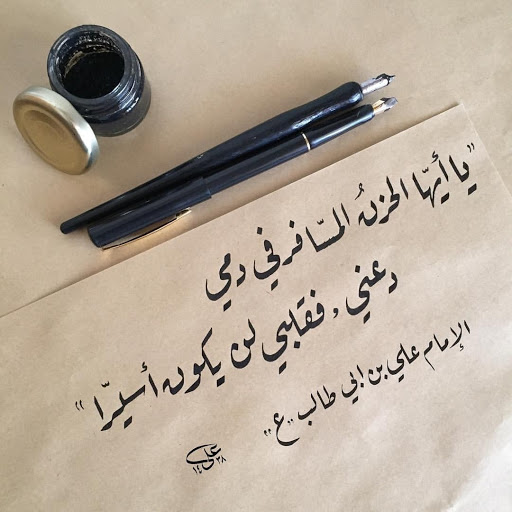 "يا أيّها الحزنُ المسّافر في دمي
دعني، فقلبي لن يكون أسيرًا"
الإمام علي بن ابي طالب "ع"
علي
١٤٣٨